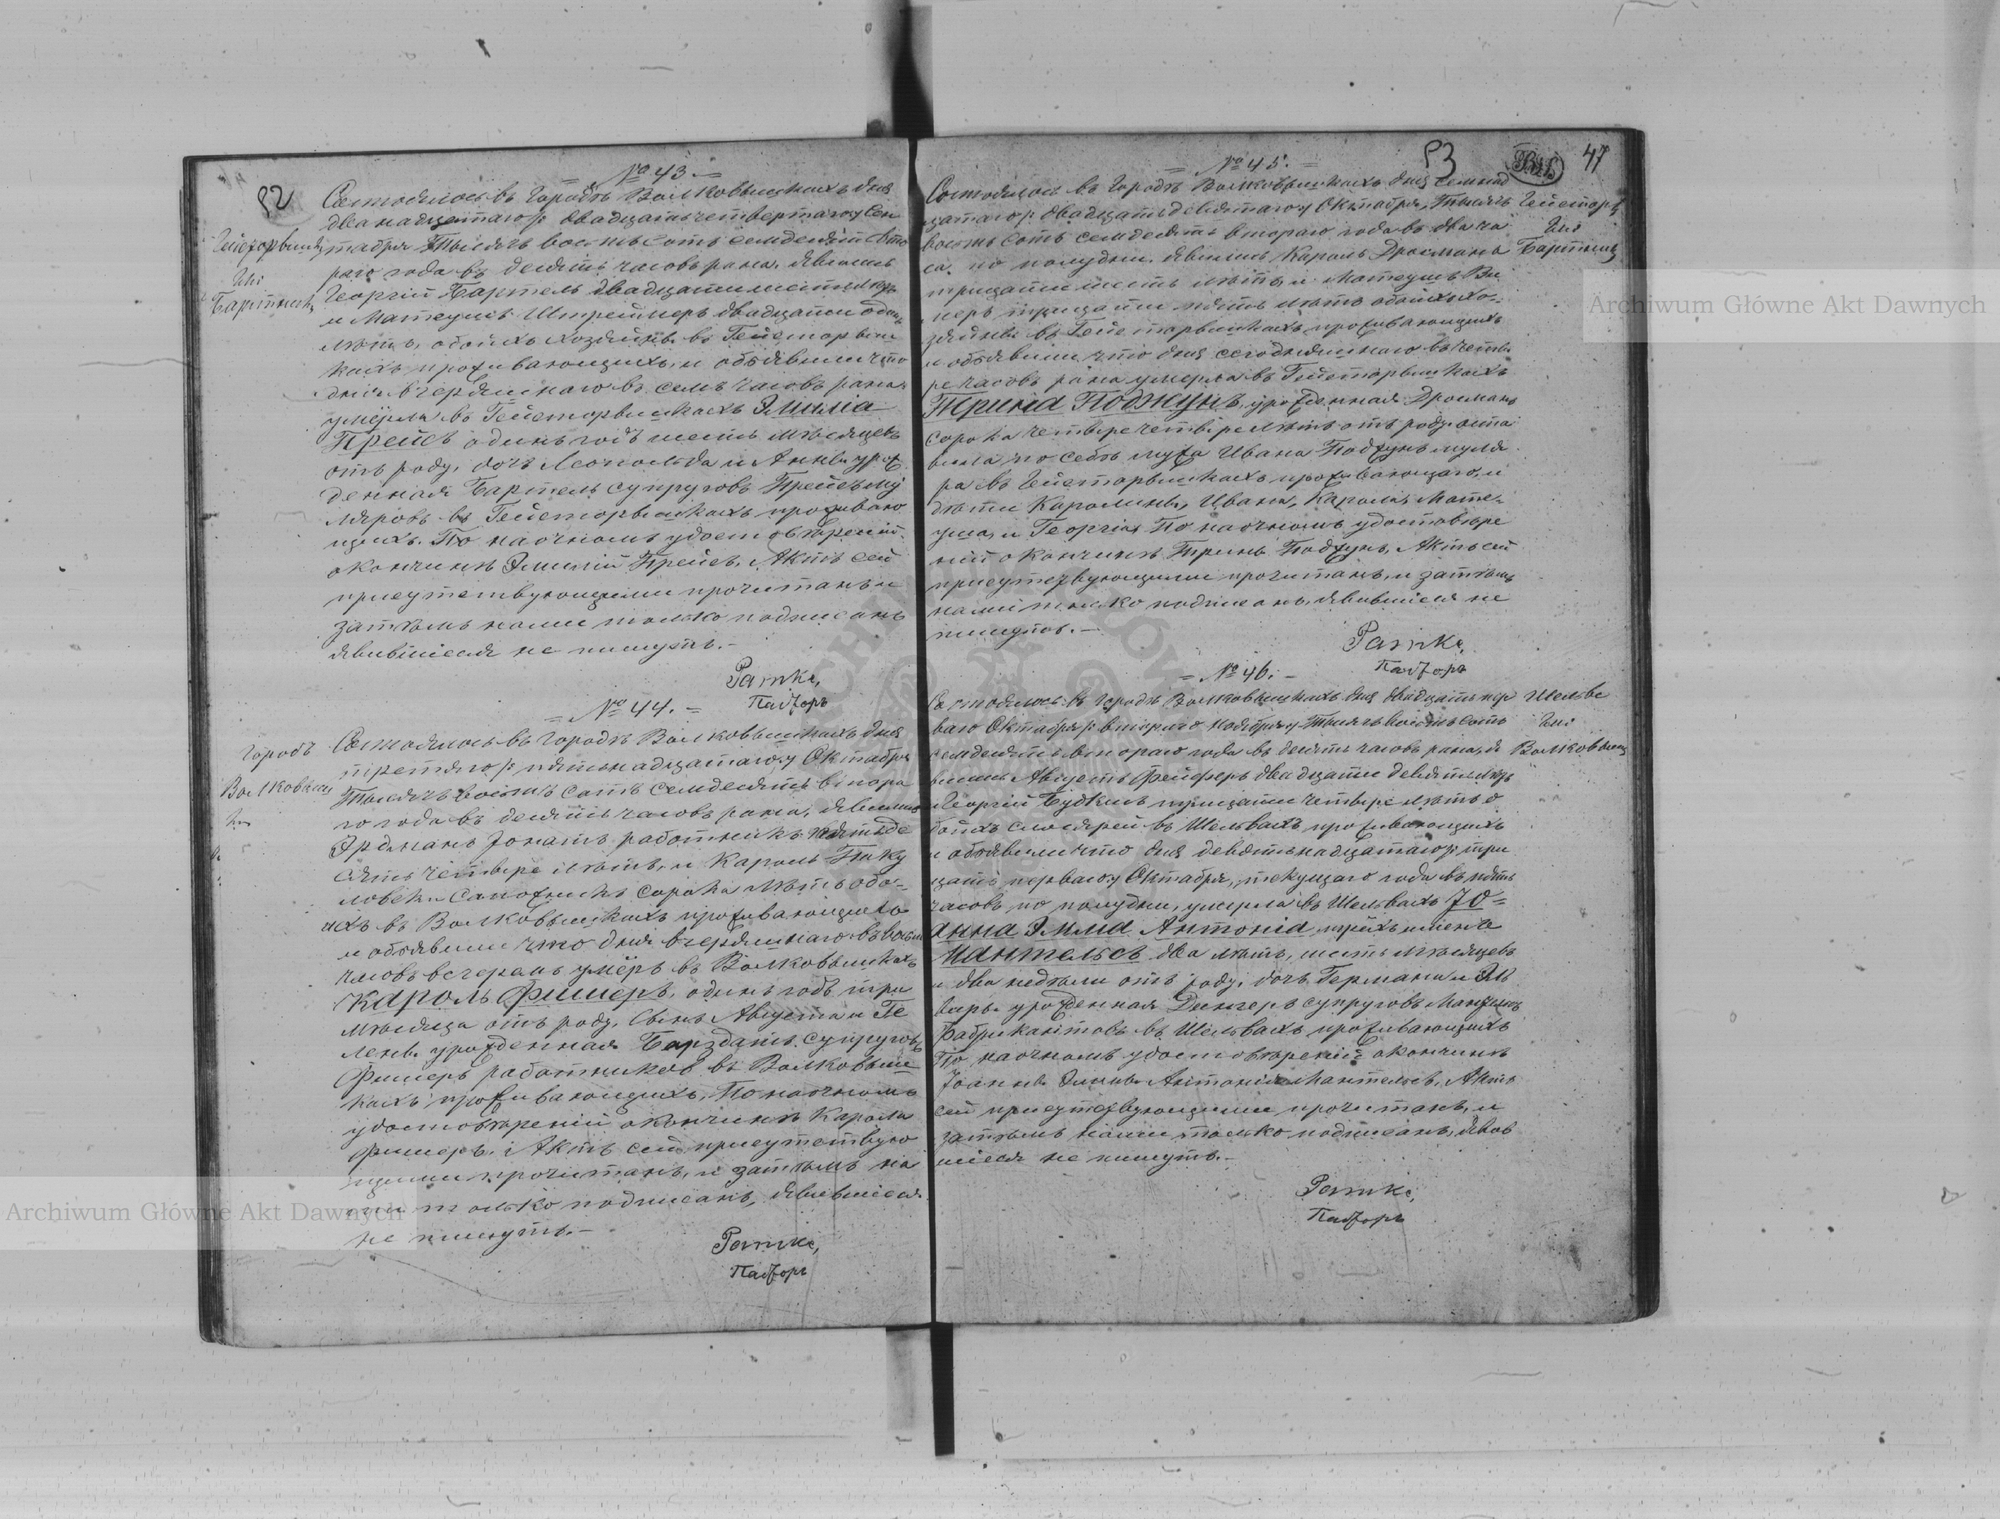 52
№ 43.
Состоялось въ Городѣ Волковышкахъ дня
двѣнадцатаго/: двадцать четвертаго :/ Сен
Гейсторвишки
тября Тысяча восемьсотъ семдесятъ втο
раго года въ десять часовъ рана. Явились
Или
Георгій Бартель двадцати шесть лѣтъ
Бартники
и Матеушъ Штреймеръ двадцати одинъ
лѣтъ, обоихъ хозяйнъ въ Гейсторвиш
кахъ проживающихъ, и объявили что
дня вчерашнаго въ семь часовъ рана
умёрла въ Гейсторвишкахъ Эмилія
Прейсъ одинъ годъ шесть мѣсяцевъ
отъ роду, дочь Леопольда и Анны урож
денная Бартель супруговъ Прейсъ му
ляровъ въ Гейсторвишкахъ проживаю
щихъ. По наочномъ удостовѣреніи
окончинѣ Эмиліи Прейсъ, Актъ сей
присутствующими прочитанъ и
затѣмъ нами только подписанъ
явившіеся не пишутъ.
Ратке,
Пасторъ
№ 44.
Городъ
Состоялось въ Городѣ Волковышкахъ дня
третяго/: пятьнадцатаго :/ Октября
Волковыш
Тысяча восемь сотъ семдесятъ втора
ки
го года въ десять часовъ рана, явились
Эрдманъ Іонатъ работникъ пятьде
сятъ четыре лѣтъ, и Кароль Пику
ловскій Сапожникъ сорока лѣтъ обо
ихъ въ Волковышкахъ проживающихъ
и объявили что дня вчерашнаго въ восемь
часовъ вечеромъ умёръ въ Волковышкахъ
Кароль Фишеръ, одинъ годъ три
мѣсяца отъ роду, Сынъ Августа и Ге
лены урожденная Барздатъ супруговъ
Фишеръ работниковъ въ Волковыш
кахъ проживающихъ. По наочномъ
удостовѣреніи окончинѣ Кароля
Фишеръ, Актъ сей присутствую
щими прочитанъ, и затѣмъ на
ми только подписанъ, явившіеся
не пишутъ.
Ратке,
Пасторъ
53
47
№ 45.
Состоялось въ Городѣ Волковышкахъ дня семнад
цатаго/: двадцать девятаго :/ Октября, Тысяча
Гейсторв
восемь сотъ семдесятъ втораго года въ два ча
Или
са по полудни. Явились Кароль Дросманъ
Бартники
тридцати шесть лѣтъ, и Матеушъ Ви
неръ тридцати пять лѣтъ обоихъ хо
зяйнъ въ Гейсторвишкахъ проживающихъ
и объявили что дня сегодняшнаго въ четы
ре часовъ рана умерла въ Гейсторвишкахъ
Трина Поджунъ, урожденная Дросманъ
сорока четыре лѣтъ отъ роду, оста
вила по себѣ мужа Ивана Поджунъ муля
ра въ Гейсторвишкахъ проживающаго, и
дѣти Каролины, Ивана, Кароля, Мате
уша, и Георгія. По наочномъ удостовѣре
ніи окончинѣ Трины Поджунъ, Актъ сей
присутствующими прочитанъ, и затѣмъ
нами только подписанъ, явившіеся не
пишутъ.
Ратке,
Пасторъ
№ 46.
Состоялось въ Городѣ Волковышкахъ дня двадцать пер
Шельвы
ваго Октября/: втораго Ноября :/ Тысяча восемь сотъ
Или
семдесятъ втораго года въ десять часовъ рана, я
Волковыш
вились Августъ Фейферъ двадцати девять лѣтъ
Георгій Будкинъ тридцати четыре лѣтъ о
боихъ слюсарей въ Шельвахъ проживающихъ
и объявили что дня девятьнадцатаго/: три
цать перваго :/ Октября, текущаго года въ пять
часовъ по полудни, умерла въ Шельвахъ Іо=
анна Эмма Антонія, трёхъ имена
Мантельсъ два лѣтъ, шесть мѣсяцевъ
и два недѣли отъ роду, дочь Германа и Эл
виры урожденная супруговъ Мантельсъ
Фабрикантовъ въ Шельвахъ проживающихъ
По наочномъ удостовѣреніи окончинѣ
Іоанны Эммы Антоніи Мантельсъ, Актъ
сей присутствующими прочитанъ, и
затѣмъ нами только подписанъ, явив
шіеся не пишутъ.
Ратке,
Пасторъ
Archiwum Główne Akt Dawnych
Archiwum Główne Akt Dawnych